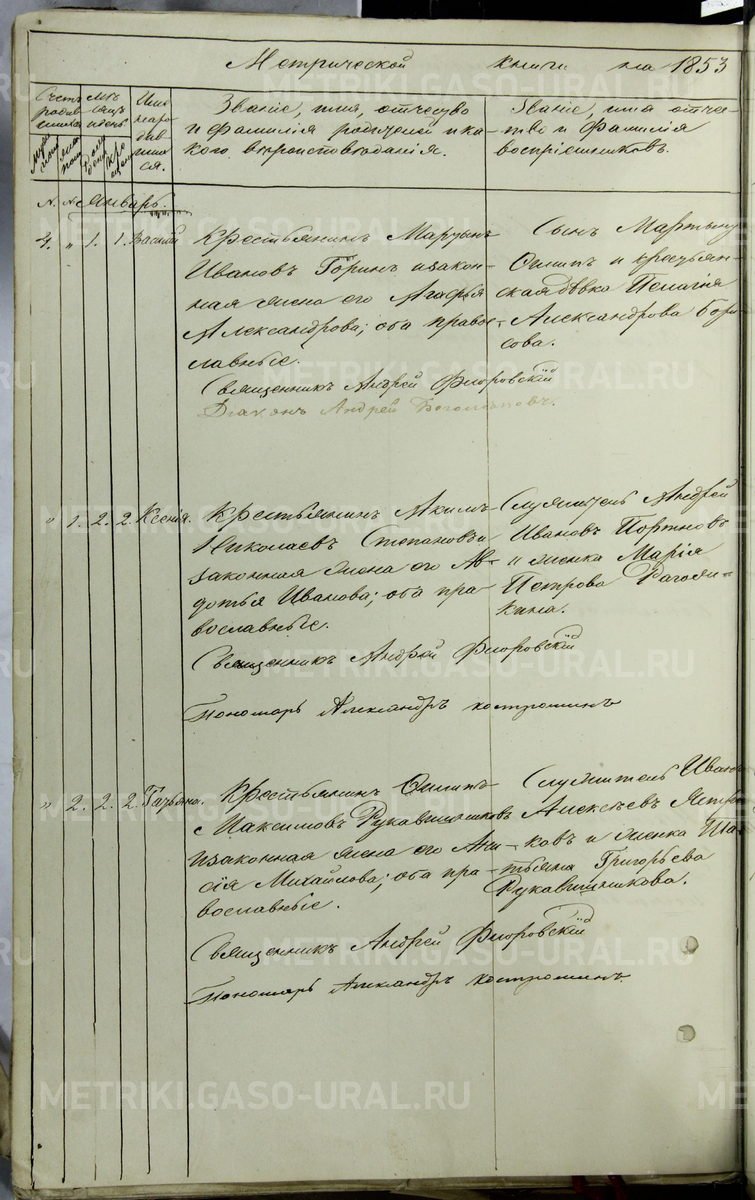 Метрической книги на 1853
Счетъ родившихся
мѣсяцъ и день
Имя народившихся.
Званіе, имя, отчество и фамилія родителей и какого вѣроисповѣданія.
Званіе, имя отчество и фамилія воспріемниковъ.
Январь.
4. " 1. 1. Василій
Крестьянинъ Мартынъ
Ивановъ Горинъ и закон-
ная жена его Агафья
Александрова; оба право-
славные.
Священникъ Андрей Флоровскій
Діаконъ Андрей Богомоловъ.
Сынъ Мартынъ
Филипъ и крестьян-
ская дѣвка Пелагія
Александрова Бори-
сова.
" 1. 2. 2. Ксенія.
Крестьянинъ Акимъ
Николаевъ Степановъ и
законная жена его Ав-
дотья Иванова; оба пра-
вославные.
Священникъ Андрей Флоровскій
Пономарь Александръ Костроминъ
Служитель Андрей
Ивановъ Портновъ
и женка Марія
Петрова Рагози-
кина.
" 2. 2. 2. Татьяна.
Крестьянинъ Филипъ
Максимовъ Рукавишниковъ
и законная жена его Ани-
сія Михайлова; оба пра-
вославные.
Священникъ Андрей Флоровскій
Пономарь Александръ Костроминъ.
Служитель Иванъ
Алексѣевъ Ястре-
ковъ и женка Та-
тьяна Григорьева
Рукавишникова.
METRIKI.GASO-URAL.RU